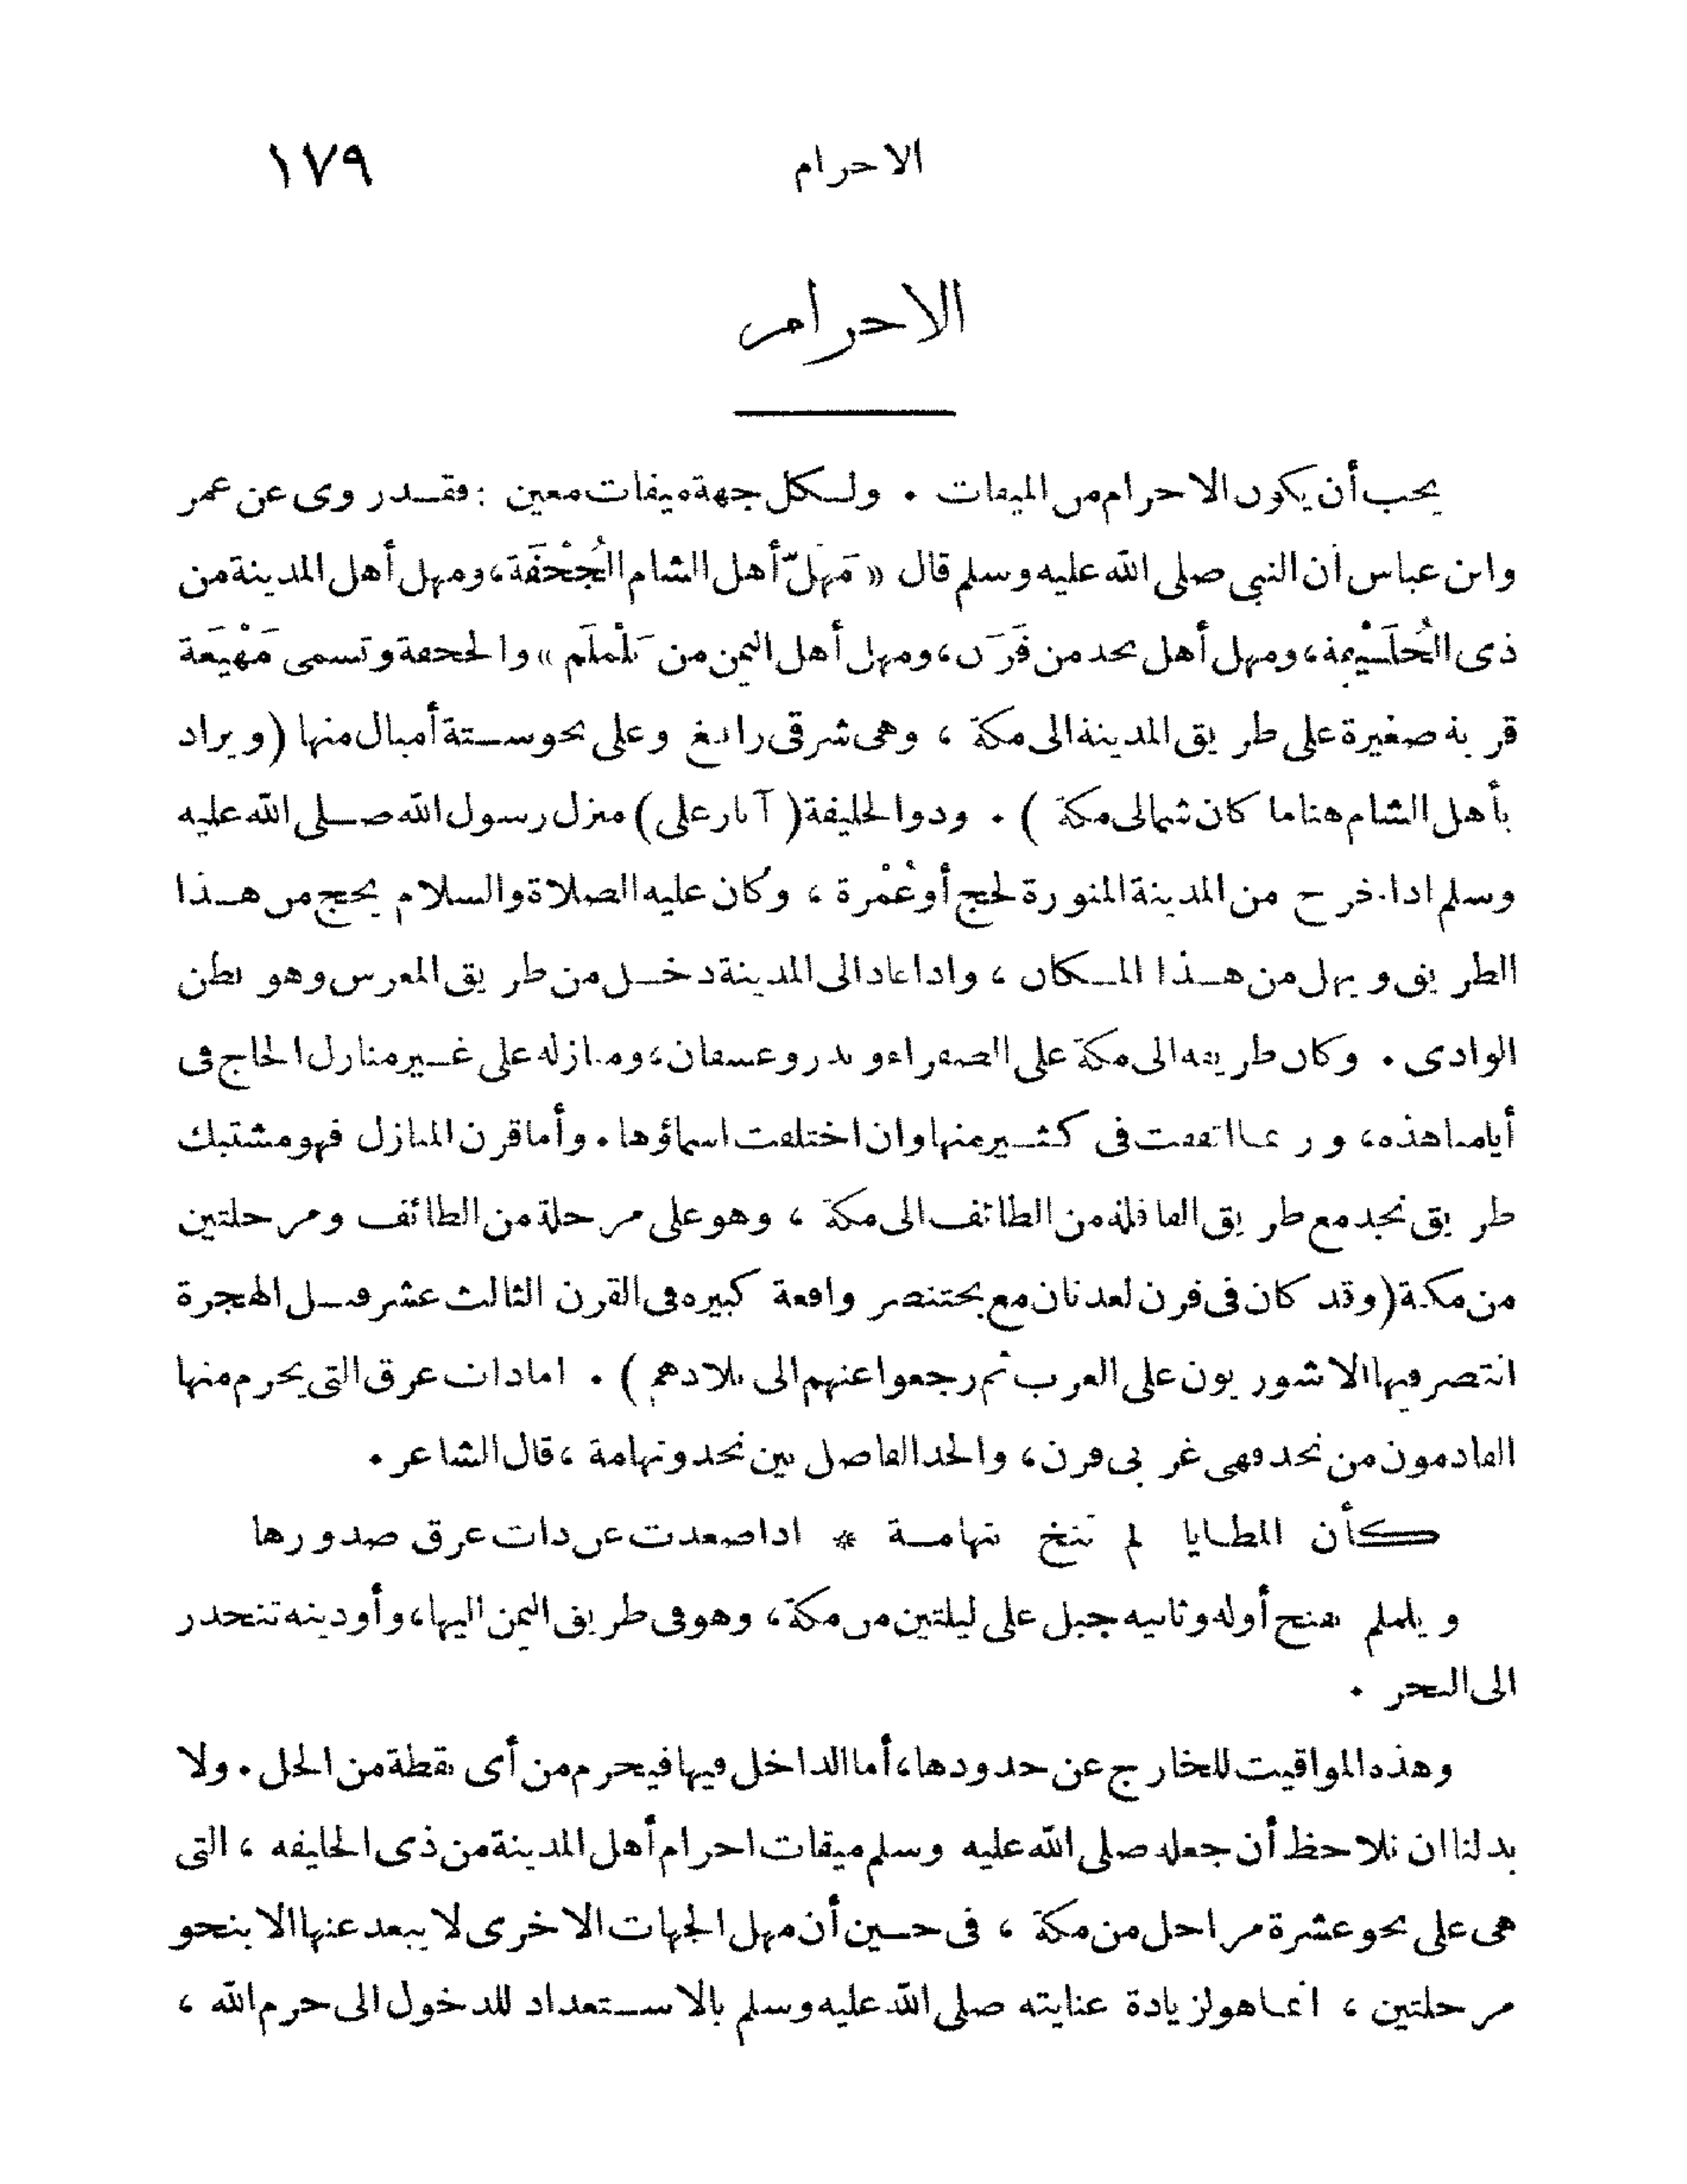 الاحرام ١٧٩
الاحرام
يجب أن يكون الاحرام من الميقات ٠ ولكل جهة ميقات معين : فقد روى عن عمر
وابن عباس أن النبى صلى الله عليه وسلم قال « مَهَلّ أهل الشام الجُحْفَة، ومهل أهل المدينة من
ذى الحُلَيْفة، ومهل أهل نجد من قَرَن، ومهل أهل اليمن من يَلَمْلَم » والجحفة وتسمى مَهْيَعَة
قرية صغيرة على طريق المدينة الى مكة ، وهى شرقى رابغ وعلى نحو ستة أميال منها (ويراد
بأهل الشام هنا ما كان شمالى مكة ) ٠ وذوالحليفة ( آبار على) منزل رسول الله صلى الله عليه
وسلم اذا خرج من المدينة المنورة لحج أو عُمْرة ، وكان عليه الصلاة والسلام يحج من هذا
الطريق ويهل من هذا المكان ، واذا عاد الى المدينة دخل من طريق المعرس وهو بطن
الوادى ٠ وكان طريقه الى مكة على الصفراء وبدر وعسفان، ومنازله على غير منازل الحاج فى
أيامنا هذه، وربما اتفقت فى كثير منها وان اختلفت اسماؤها ٠ وأما قرن المنازل فهو مشتبك
طريق نجد مع طريق القافلة من الطائف الى مكة ، وهو على مرحلة من الطائف ومرحلتين
من مكة (وقد كان فى قرن لعدنان مع بختنصر واقعة كبيره فى القرن الثالث عشر قبل الهجرة
انتصر فيها الاشوريون على العرب ثم رجعوا عنهم الى بلادهم ) ٠ اما ذات عرق التى يحرم منها
القادمون من نجد فهى غربى قرن، والحد الفاصل بين نجد وتهامة ، قال الشاعر ٠
كأن المطايا لم تنخ بتهامة * اذا صعدت عن ذات عرق صدورها
ويلملم بفتح أوله وثانيه جبل على ليلتين من مكة، وهو فى طريق اليمن اليها، وأوديته تنحدر
الى البحر ٠
وهذه المواقيت للخارج عن حدودها، أما الداخل فيها فيحرم من أى نقطة من الحل ٠ ولا
بد لنا ان نلاحظ أن جعله صلى الله عليه وسلم ميقات احرام أهل المدينة من ذى الحليفه ، التى
هى على نحو عشرة مراحل من مكة ، فى حين أن مهل الجهات الاخرى لا يبعد عنها الا بنحو
مرحلتين ، انما هو لزيادة عنايته صلى الله عليه وسلم بالاستعداد للدخول الى حرم الله ،